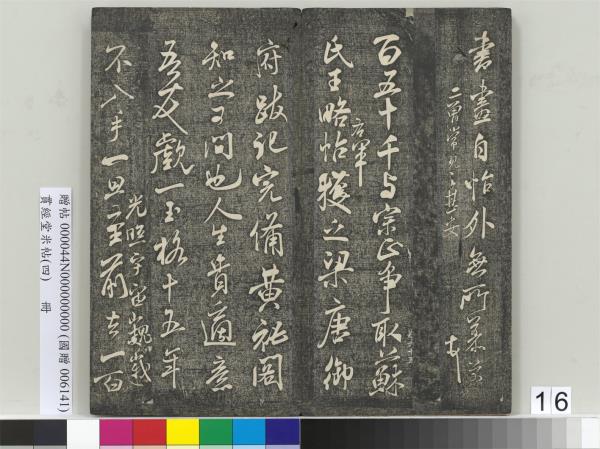 書畫自怡外無所慕
二舅常見之甚安
百五十千与宗正爭取蘇
氏王略帖獲之梁唐御
右軍
府跋記完備黃祕閣
知之可問也人生貴適意
吾友覷一玉格十五年
不入手一旦至前去一百
光照宇宙巍峩
贈帖 000044N000000000 (國贈 006141)
貫經堂米帖(四) 冊
16